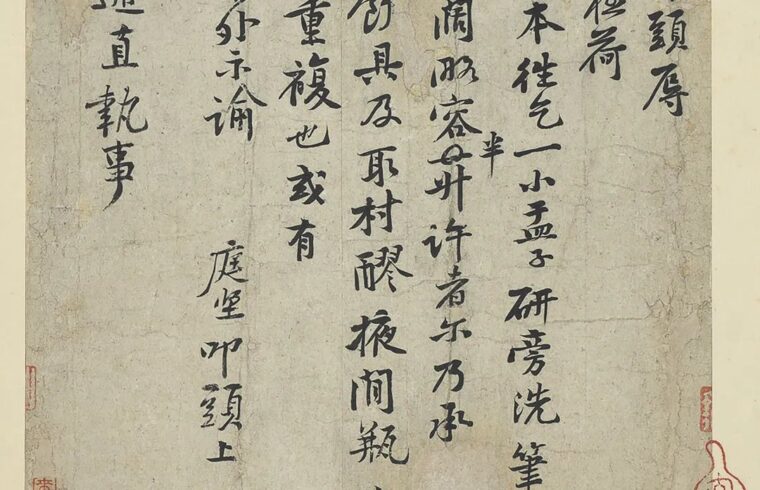 頭辱
極荷
本往乞一小盂子研旁洗筆
闊略容半升許者尔乃承
具及取村醪掖間瓶
重複也或有
外示諭
庭坚叩頭上
直執事